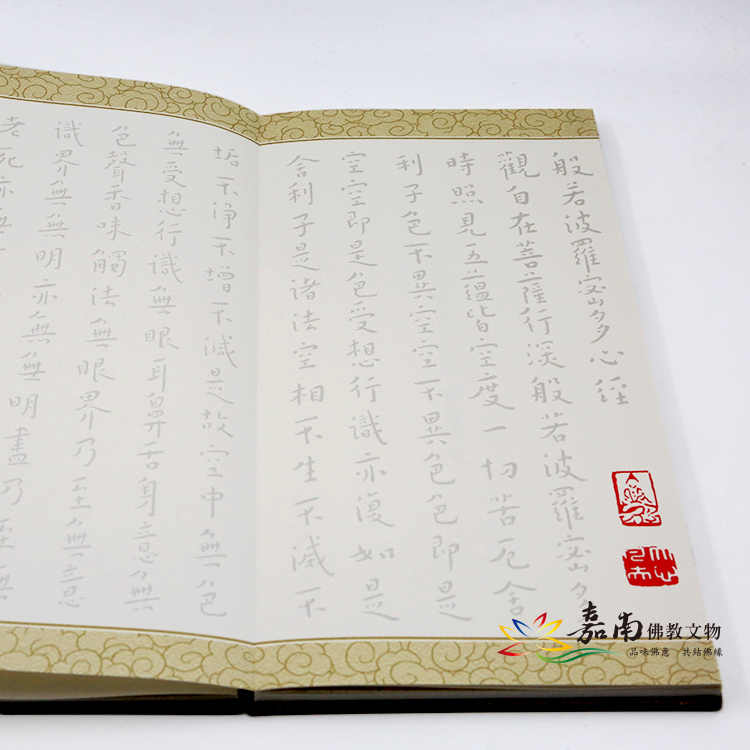 般若波羅密多心經
觀自在菩薩行深般若波羅密多
時照見五蘊皆空度一切苦厄舍
利子色不異空空不異色色即是
空空即是色受想行識亦復如是
舍利子是諸法空相不生不滅不
垢不淨不增不減是故空中無色
無受想行識無眼耳鼻舌身意無
色聲香味觸法無眼界乃至無意
識界無無明亦無無明盡乃至無
老死亦無
嘉南佛教文物
品味佛意 共結佛緣